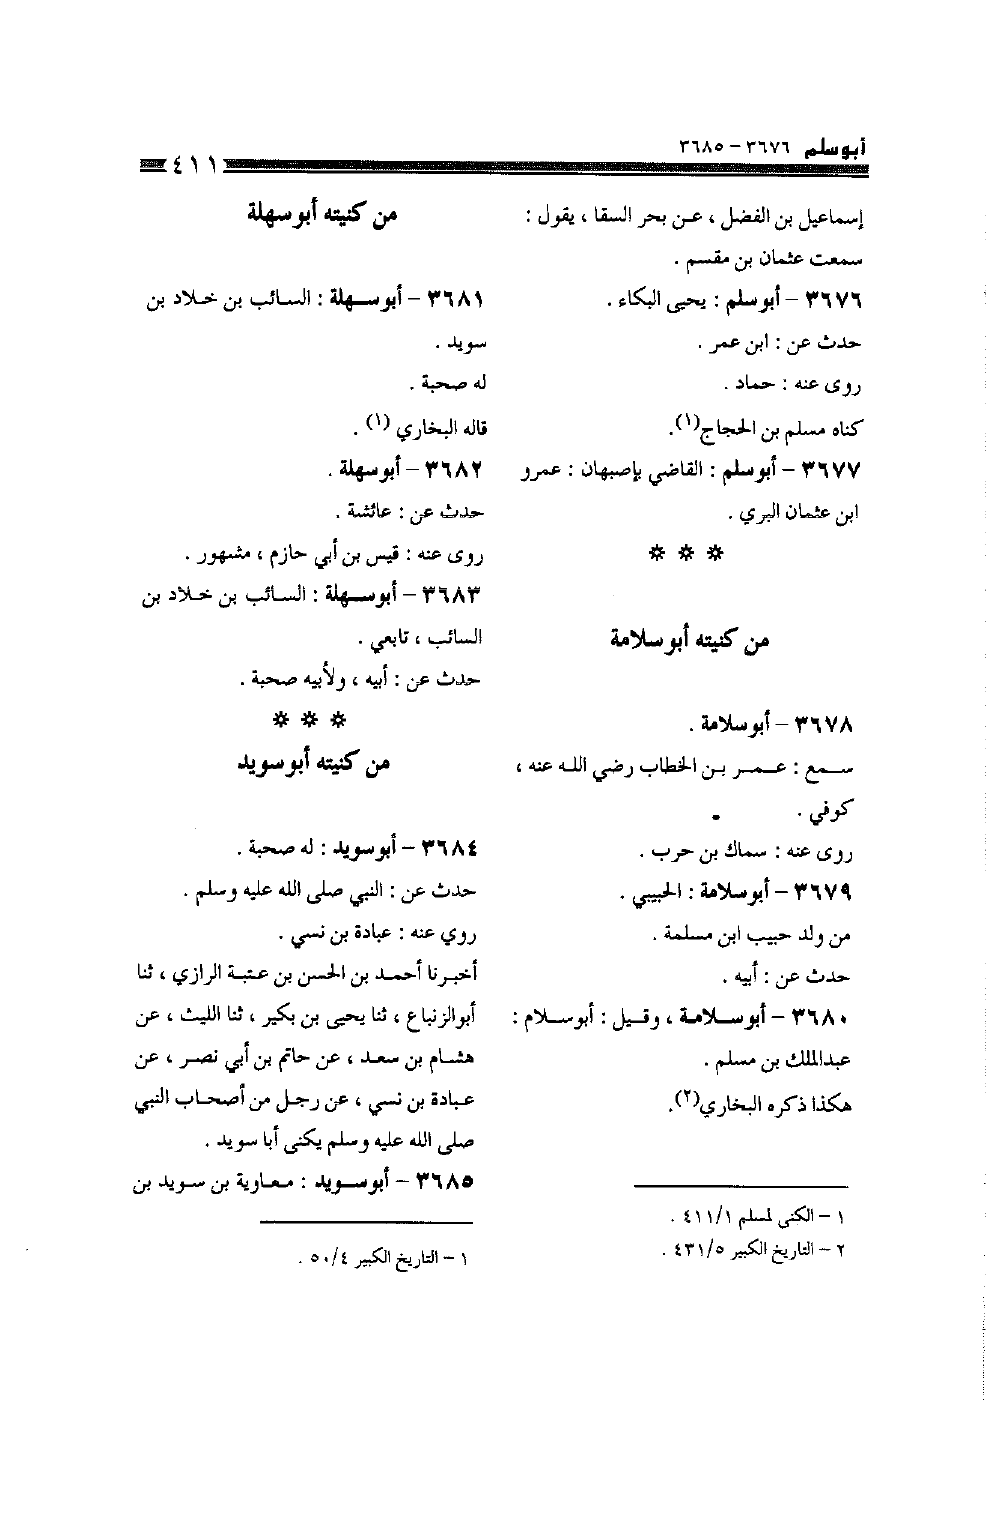 أبو سلم ٣٦٧٦ - ٣٦٨٥
٤١١
إسماعيل بن الفضل ، عن بحر السقا ، يقول :
سمعت عثمان بن مقسم .
٣٦٧٦ - أبو سلم : يحيى البكاء .
حدث عن : ابن عمر .
روى عنه : حماد .
كناه مسلم بن الحجاج(١).
٣٦٧٧ - أبو سلم : القاضي بإصبهان : عمرو
ابن عثمان البري .
* * *
من كنيته أبو سلامة
٣٦٧٨ - أبو سلامة .
سمع : عمر بن الخطاب رضي الله عنه ،
كوفي .
روى عنه : سماك بن حرب .
٣٦٧٩ - أبو سلامة : الحبيبي .
من ولد حبيب ابن مسلمة .
حدث عن : أبيه .
٣٦٨٠ - أبو سلامة ، وقيل : أبو سلام :
عبدالملك بن مسلم .
هكذا ذكره البخاري(٢).
١ - الكنى لمسلم ٤١١/١ .
٢ - التاريخ الكبير ٤٣١/٥ .
من كنيته أبو سهلة
٣٦٨١ - أبو سهلة : السائب بن خلاد بن
سويد .
له صحبة .
قاله البخاري (١) .
٣٦٨٢ - أبو سهلة .
حدث عن : عائشة .
روى عنه : قيس بن أبي حازم ، مشهور .
٣٦٨٣ - أبو سهلة : السائب بن خلاد بن
السائب ، تابعي .
حدث عن : أبيه ، ولأبيه صحبة .
* * *
من كنيته أبو سويد
٣٦٨٤ - أبو سويد : له صحبة .
حدث عن : النبي صلى الله عليه وسلم .
روي عنه : عبادة بن نسي .
أخبرنا أحمد بن الحسن بن عتبة الرازي ، ثنا
أبو الزنباع ، ثنا يحيى بن بكير ، ثنا الليث ، عن
هشام بن سعد ، عن حاتم بن أبي نصر ، عن
عبادة بن نسي ، عن رجل من أصحاب النبي
صلى الله عليه وسلم يكنى أبا سويد .
٣٦٨٥ - أبو سويد : معاوية بن سويد بن
١ - التاريخ الكبير ٥٠/٤ .